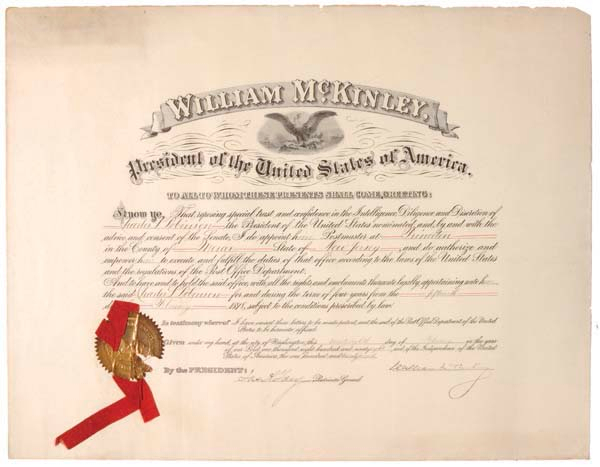 WILLIAM McKINLEY,
President of the United States of America.
TO ALL TO WHOM THESE PRESENTS SHALL COME, GREETING:
Know ye, That reposing special trust and confidence in the Intelligence Diligence and Discretion of
the President of the United States nominated, and by and with the
advice and consent of the Senate, do appoint him Postmaster at
in the County of State of New Jersey and do authorize and
empower him to execute and fulfill the duties of that office according to the laws of the United States
and the regulations of the Post Office Department.
And to have and to hold the said office, with all the rights and emoluments thereunto legally appertaining unto him
the said for and during the term of four years from the
day of 189 , subject to the conditions prescribed by law.
In testimony whereof I have caused these letters to be made patent, and the seal of the Post Office Department of the United
States to be hereunto affixed.
Given under my hand, at the city of Washington, this day of in the year
of our Lord, one thousand eight hundred and ninety and of the Independence of the United
States of America, the one hundred and
By the PRESIDENT: William McKinley
Postmaster General